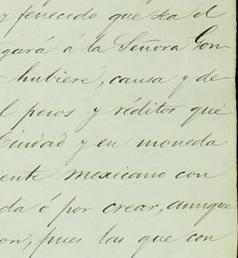 fenecido que sea el
gará á la Señora Gon
hubiere, causa y de
l pesos y réditos que
Ciudad y en moneda
iente mexicano con
da ó por crear, aunque
on, pues las que con